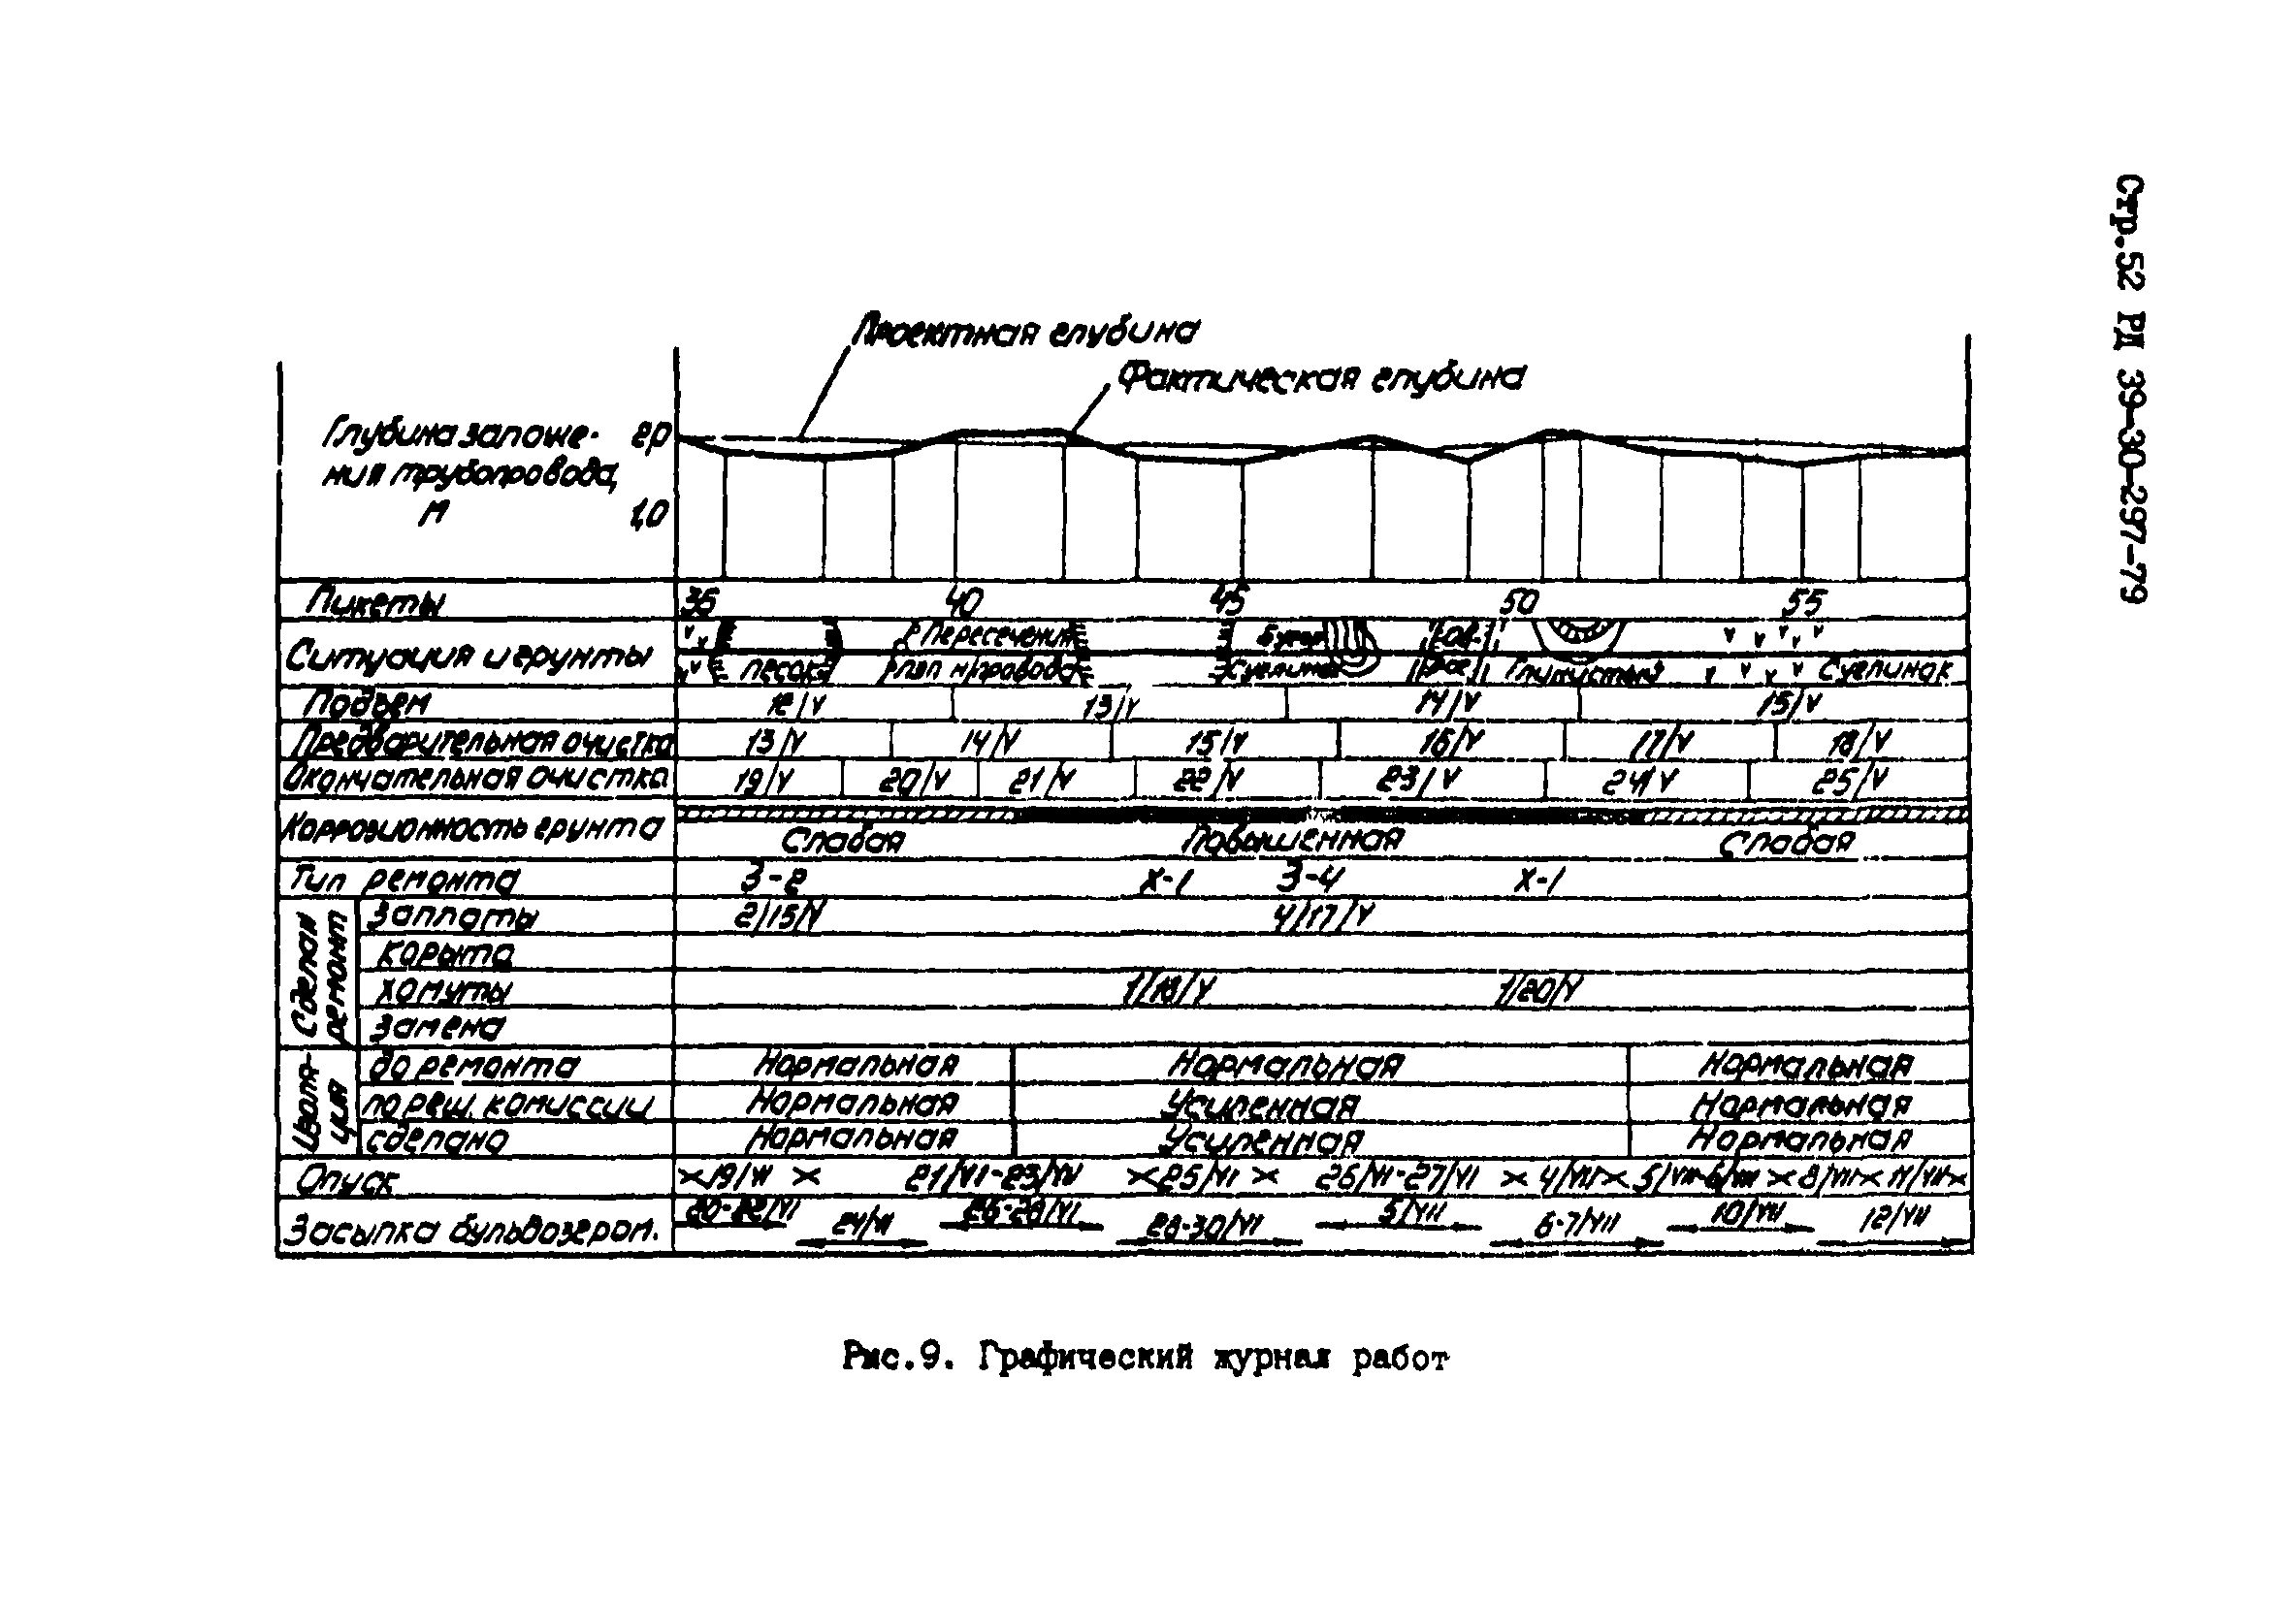 Стр.52 РД 39-30-297-79
Проектная глубина
Фактическая глубина
Глубина заложе- 2,0
ния трубопровода,
м 1,0
Пикеты 35 40 45 50 55
Ситуация и грунты Пересечения Бугор Ов-
песок н/провода Суглинок раг Глинистый Суглинок
Подъем 12/V 13/V 14/V 15/V
Предварительная очистка 13/V 14/V 15/V 16/V 17/V 18/V
Окончательная очистка 19/V 20/V 21/V 22/V 23/V 24/V 25/V
Коррозионность грунта Слабая Повышенная Слабая
Тип ремонта З-2 Х-1 З-4 Х-1
Сделан ремонт
Заплаты 2/15/V 4/17/V
Корыта
Хомуты 1/18/V 1/20/V
Замена
Изоля-
ция
до ремонта Нормальная Нормальная Нормальная
по реш. комиссии Нормальная Усиленная Нормальная
сделана Нормальная Усиленная Нормальная
Опуск 19/VI 21/VI-23/VI 25/VI 26/VI-27/VI 4/VII 5/VII-6/VII 8/VII 11/VII
Засыпка бульдозером. 20-22/VI 24/VI 26-28/VI 28-30/VI 5/VII 6-7/VII 10/VII 12/VII
Рис.9. Графический журнал работ